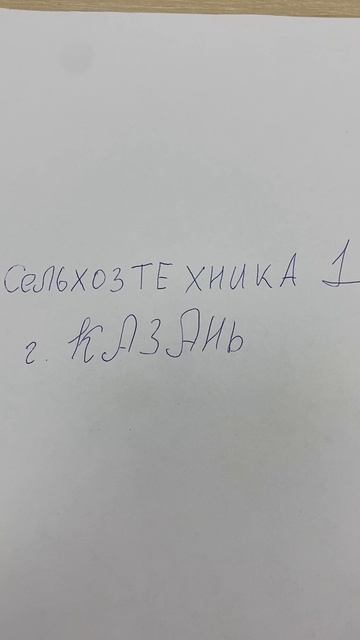 СЕЛЬХОЗТЕХНИКА 1
г. КАЗАНЬ